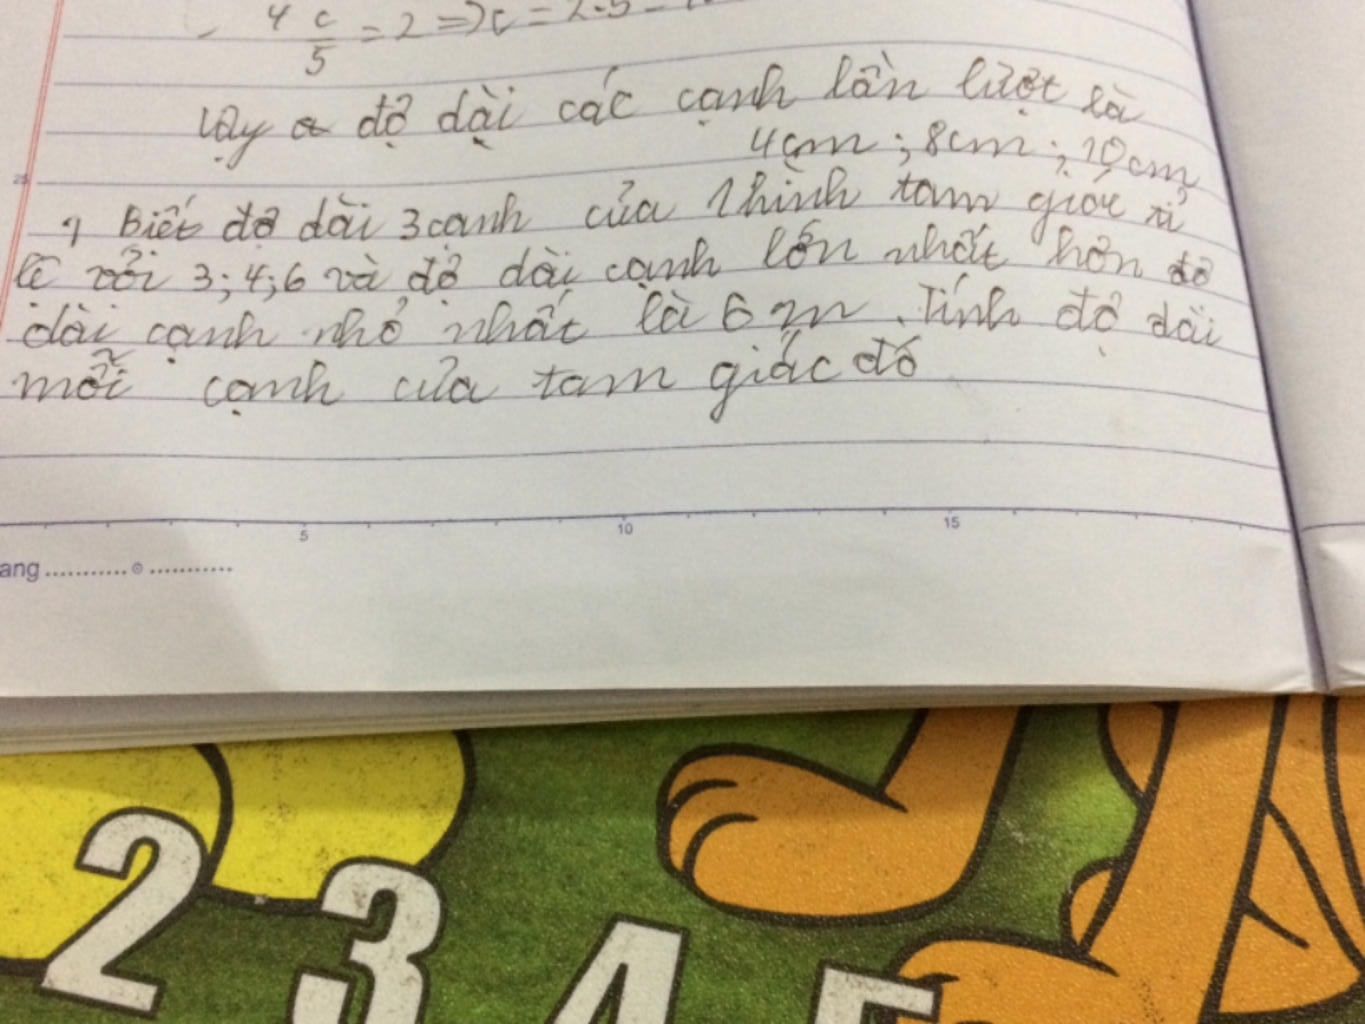 4 c/5 = 2 => c = 2.5 =
Vậy độ dài các cạnh lần lượt là
4cm; 8cm; 10cm
25
Biết độ dài 3 cạnh của 1 hình tam giác tỉ
lê với 3; 4; 6 và độ dài cạnh lớn nhất hơn độ
dài cạnh nhỏ nhất là 6 m. Tính độ dài
mỗi cạnh của tam giác đó
5 10 15
ang ........... ⊙ ...........
2 3 4 5